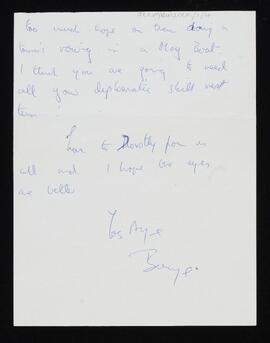 too much hope on them doing a
term's rowing in a May Boat -
I think you are going to need
all your diplomatic skill next
term!
Love to Dorothy from us
all and I hope the eyes
are better
Yrs Aye